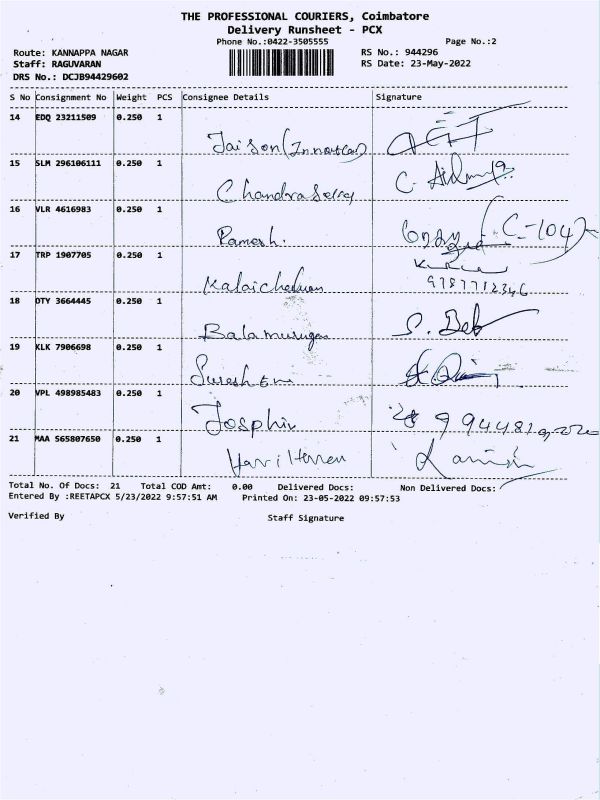 THE PROFESSIONAL COURIERS, Coimbatore
Delivery Runsheet - PCX
Phone No.:0422-3505555
Page No.:2
Route: KANNAPPA NAGAR
RS No.: 944296
Staff: RAGUVARAN
RS Date: 23-May-2022
DRS No.: DCJB94429602
S No Consignment No Weight PCS Consignee Details Signature
14 EDQ 23211509 0.250 1
Jaison
15 SLM 296106111 0.250 1
16 VLR 4616983 0.250 1
Ramesh. (C-104)
17 TRP 1907705 0.250 1
9787712346
18 OTY 3664445 0.250 1
Balamurugan
19 KLK 7906698 0.250 1
20 VPL 498985483 0.250 1
Josphin
21 MAA 565807650 0.250 1
Total No. Of Docs: 21 Total COD Amt: 0.00 Delivered Docs: Non Delivered Docs:
Entered By :REETAPCX 5/23/2022 9:57:51 AM Printed On: 23-05-2022 09:57:53
Verified By Staff Signature